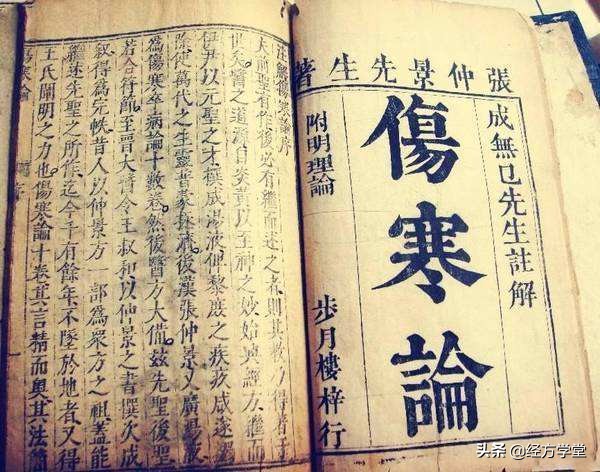 張仲景先生著
成無已先生註解
傷寒論
附明理論
步月樓梓行
注解傷寒論序
夫前聖有作後必有繼而述之者則其教乃得著于
世矣醫之道源自炎黃以至神之妙始興經方繼而
伊尹以元聖之才撰成湯液俾黎庶之疾疚咸遂蠲
除使萬代之生靈普蒙拯濟後漢張仲景又廣湯液
為傷寒卒病論十數卷然後醫方大備茲先聖後聖
若合符節至晉太醫令王叔和以仲景之書撰次成
敘得為完帙昔人以仲景方一部為眾方之祖蓋能
繼述先聖之所作迄今千有餘年不墜於地者又得
王氏闡明之力也傷寒論十卷其言精而奧其法簡
傷寒論 序
头条 @经方学堂